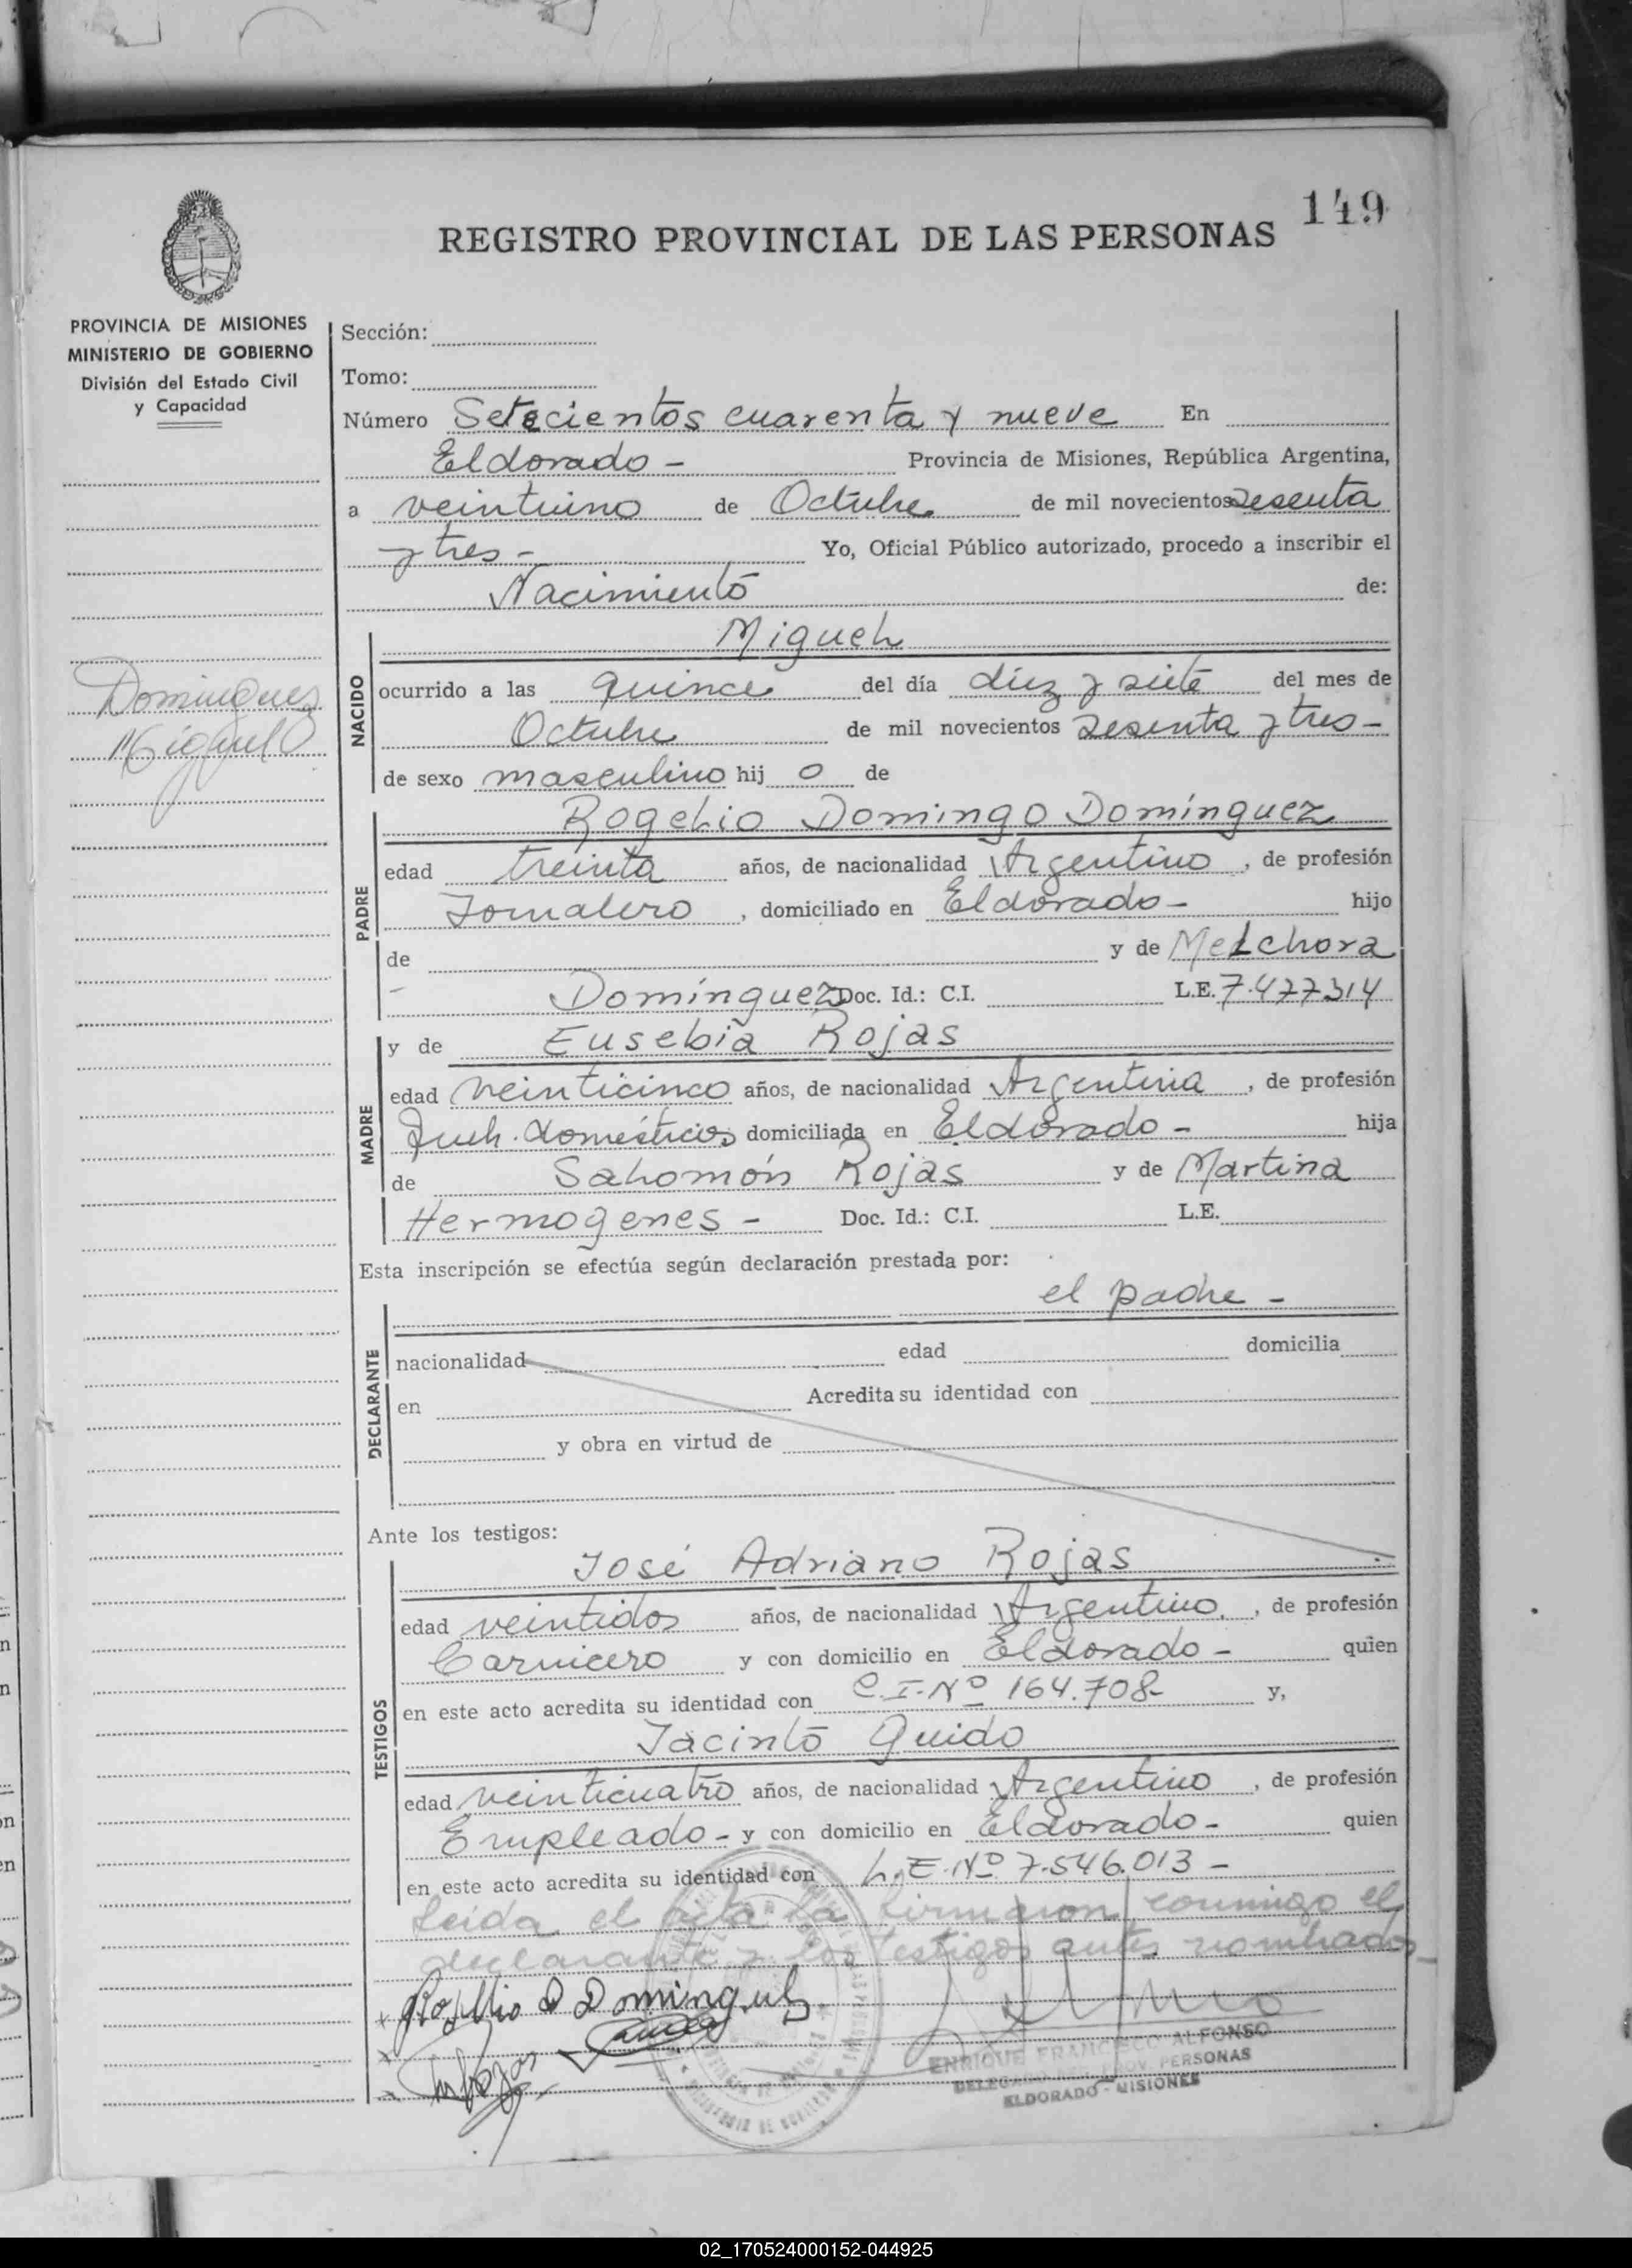 149
REGISTRO PROVINCIAL DE LAS PERSONAS
PROVINCIA DE MISIONES
MINISTERIO DE GOBIERNO
División del Estado Civil
y Capacidad
Sección:
Tomo:
Número Setecientos cuarenta y nueve En
Eldorado - Provincia de Misiones, República Argentina,
a veintiuno de Octubre de mil novecientos sesenta
y tres - Yo, Oficial Público autorizado, procedo a inscribir el
Nacimiento de:
Dominguez
Miguel
NACIDO
Miguel
ocurrido a las quince del día diez y siete del mes de
Octubre de mil novecientos sesenta y tres -
de sexo masculino hij o de
PADRE
Rogelio Domingo Domínguez
edad treinta años, de nacionalidad Argentino, de profesión
Jornalero, domiciliado en Eldorado - hijo
de y de Melchora
- Domínguez Doc. Id.: C.I. L.E. 7.477314
MADRE
y de Eusebia Rojas
edad veinticinco años, de nacionalidad Argentina, de profesión
domésticos domiciliada en Eldorado - hija
de Salomón Rojas y de Martina
Hermogenes - Doc. Id.: C.I. L.E.
Esta inscripción se efectúa según declaración prestada por:
el padre -
DECLARANTE
nacionalidad edad domicilia
en Acredita su identidad con
y obra en virtud de
Ante los testigos:
TESTIGOS
José Adriano Rojas
edad veintidos años, de nacionalidad Argentino, de profesión
Carnicero y con domicilio en Eldorado - quien
en este acto acredita su identidad con C.I. Nº 164.708- y,
Jacinto Guido
edad veinticuatro años, de nacionalidad Argentino, de profesión
Empleado - y con domicilio en Eldorado - quien
en este acto acredita su identidad con L.E. Nº 7.546.013 -
Leida el acta la firmaron conmigo el
declarante y los testigos antes nombrados -
Rogelio D Dominguez
ENRIQUE FRANCISCO ALFONSO
PROV. PERSONAS
ELDORADO - MISIONES
02_170524000152-044925